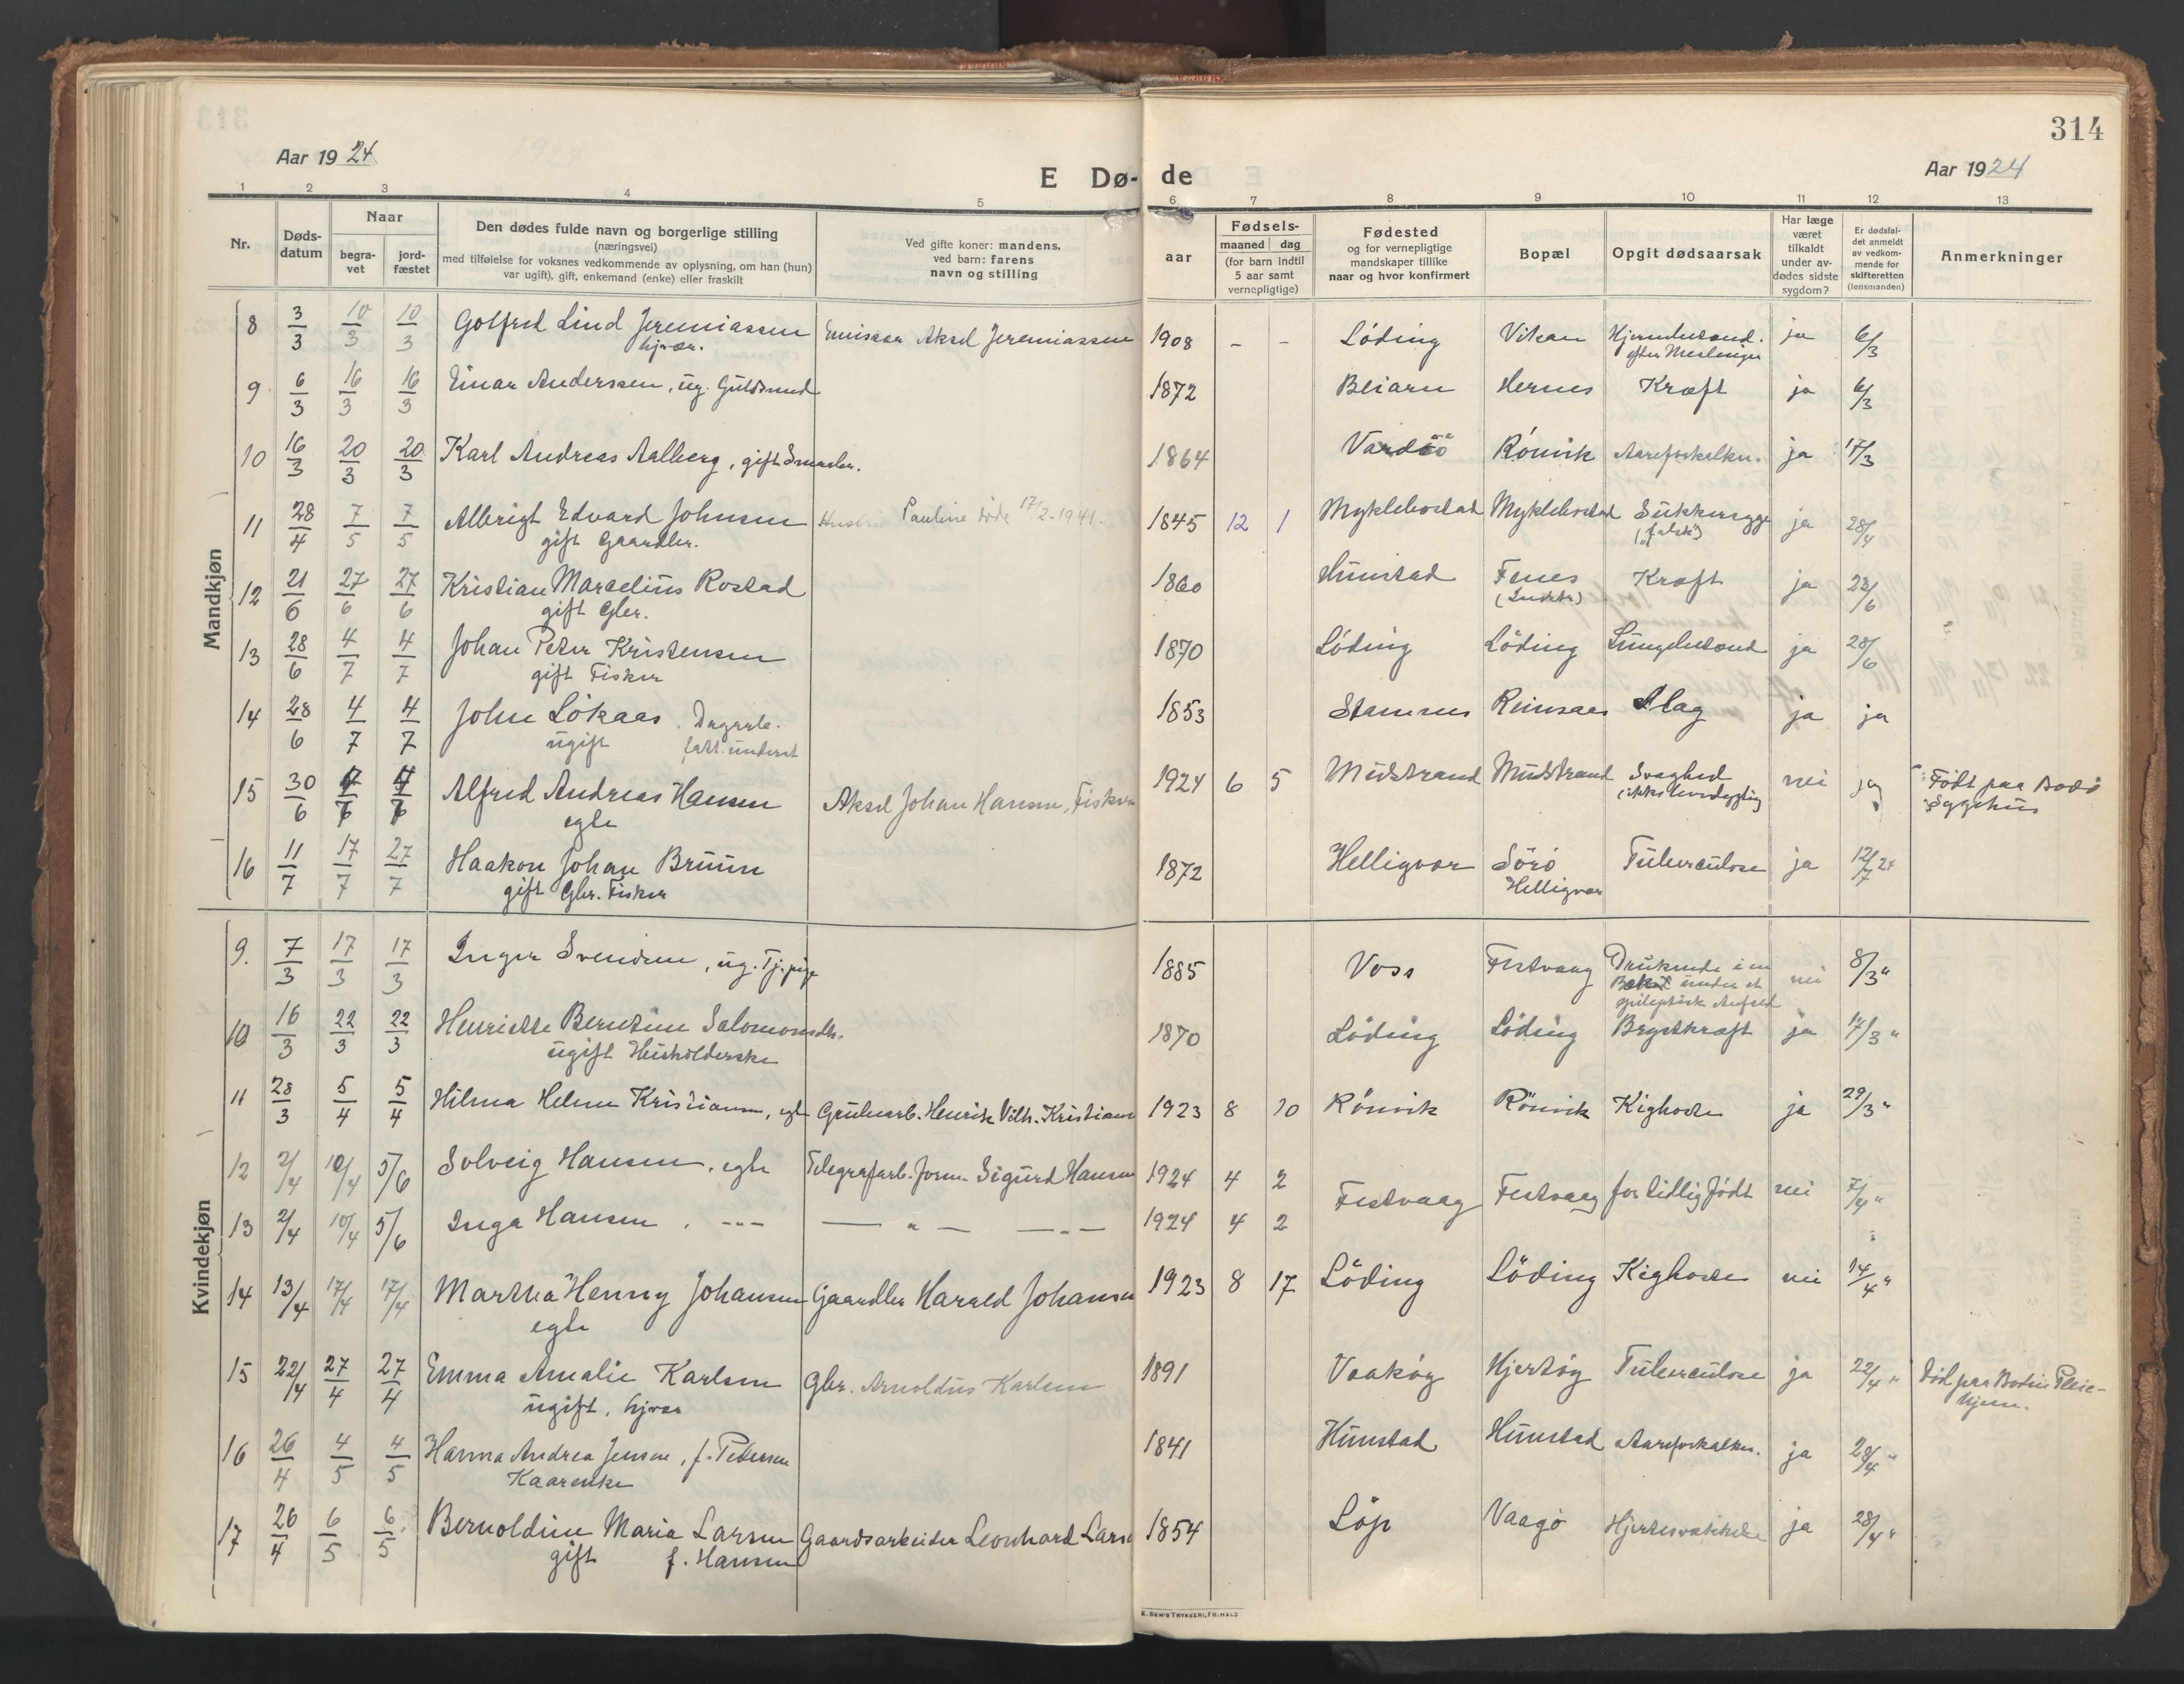 314
Aar 1924
E Dø-
de
Aar 1924
1 2 3 4 5 6 7 8 9 10 11 12 13
Nr.
Døds-
datum
Naar
begra-
vet
jord-
fæstet
Den dødes fulde navn og borgerlige stilling
(næringsvei)
med tilføielse for voksnes vedkommende av oplysning, om han (hun)
var ugift), gift, enkemand (enke) eller fraskilt
Ved gifte koner: mandens,
ved barn: farens
navn og stilling
aar
Fødsels-
maaned dag
(for barn indtil
5 aar samt
vernepligtige)
Fødested
og for vernepligtige
mandskaper tillike
naar og hvor konfirmert
Bopæl
Opgit dødsaarsak
Har læge
været
tilkaldt
under av-
dødes sidste
sygdom?
Er dødsfal-
det anmeldt
av vedkom-
mende for
skifteretten
(lensmanden)
Anmerkninger
Mandkjøn
8 3/3 10/3 10/3 Golfred Lind Jeremiassen Emissær Aksel Jeremiassen 1908 - - Löding Vikan Hjernebetænd. ja 6/3
hjvær. efter Meslinger
9 6/3 16/3 16/3 Einar Anderssen, ug. Guldsmed 1872 Beiarn Hernes Kræft ja 6/3
10 16/3 20/3 20/3 Karl Andreas Aalberg, gift Snedker. 1864 Vardö Rönvik Aareforkalkn. ja 17/3
11 28/4 7/5 7/5 Albrigt Edvard Johnsen Hustru Pauline döde 17/2-1941. 1845 12 1 Myklebostad Myklebostad Sukkersyge ja 28/4
gift Gaardbr.
12 21/6 27/6 27/6 Kristian Marselius Rostad 1860 Hunstad Fenes Kræft ja 23/6
gift Gbr.
13 28/6 4/7 4/7 Johan Peter Kristensen 1870 Löding Löding Lungebetænd ja 28/6
gift Fisker
14 28/6 4/7 4/7 John Lökaas. Dagarb. 1853 Stamnes Reinsaas Slag ja ja
ugift fatt. underst
15 30/6 Alfred Andreas Hansen Aksel Johan Hansen, Fisker 1924 6 5 Midstrand Midstrand Svaghed nei ja Födt paa Bodö
egte (ikke levedygtig Sygehus
16 11/7 17/7 27/7 Haakon Johan Bruun 1872 Helligvær Sörö Tuberculose ja 12/7 24
gift Gbr. Fisker Helligvær
Kvindekjøn
9. 7/3 17/3 17/3 Inger Svendsen, ug. Tj.pige 1885 Voss Festvaag Druknede i en nei 8/3 "
Bæk under et
epileptisk Anfald
10 16/3 22/3 22/3 Henriette Berntine Salomonsdtr. 1870 Löding Löding Brystkræft ja 17/3 "
ugift Husholderske
11 28/3 5/4 5/4 Hilma Helene Kristiansen, egte Grubearb. Henrik Vilh. Kristians 1923 8 10 Rönvik Rönvik Kighoste ja 29/3 "
12 2/4 10/4 5/6 Solveig Hansen, egte Telegrafarb. form. Sigurd Hansen 1924 4 2 Festvaag Festvaag for tidlig födt nei 7/4 "
13 2/4 10/4 5/6 Inga Hansen, --- — " — — " — 1924 4 2
14 13/4 17/4 17/4 Martha Henny Johansen Gaardbr Harald Johansen 1923 8 17 Löding Löding Kighoste nei 14/4 "
egte
15 22/4 27/4 27/4 Emma Amalie Karlsen Gbr. Arnoldus Karlsen 1891 Vaaköy Hjertöy Tuberculose ja 22/4 " Död paa Bodin Pleie-
ugift, hjvær hjem.
16 26/4 4/5 4/5 Hanna Andrea Jensen, f. Petersen 1841 Hunstad Hunstad Aareforkalkn. ja 28/4 "
Kaarenke
17 26/4 6/5 6/5 Bernoldine Maria Larsen Gaardsarbeider Leonhard Larse 1854 Löp Vaagö Hjertesvækkelse ja 28/4 "
gift f. Hansen
E. SEM'S TRYKKERI, FR.HALD